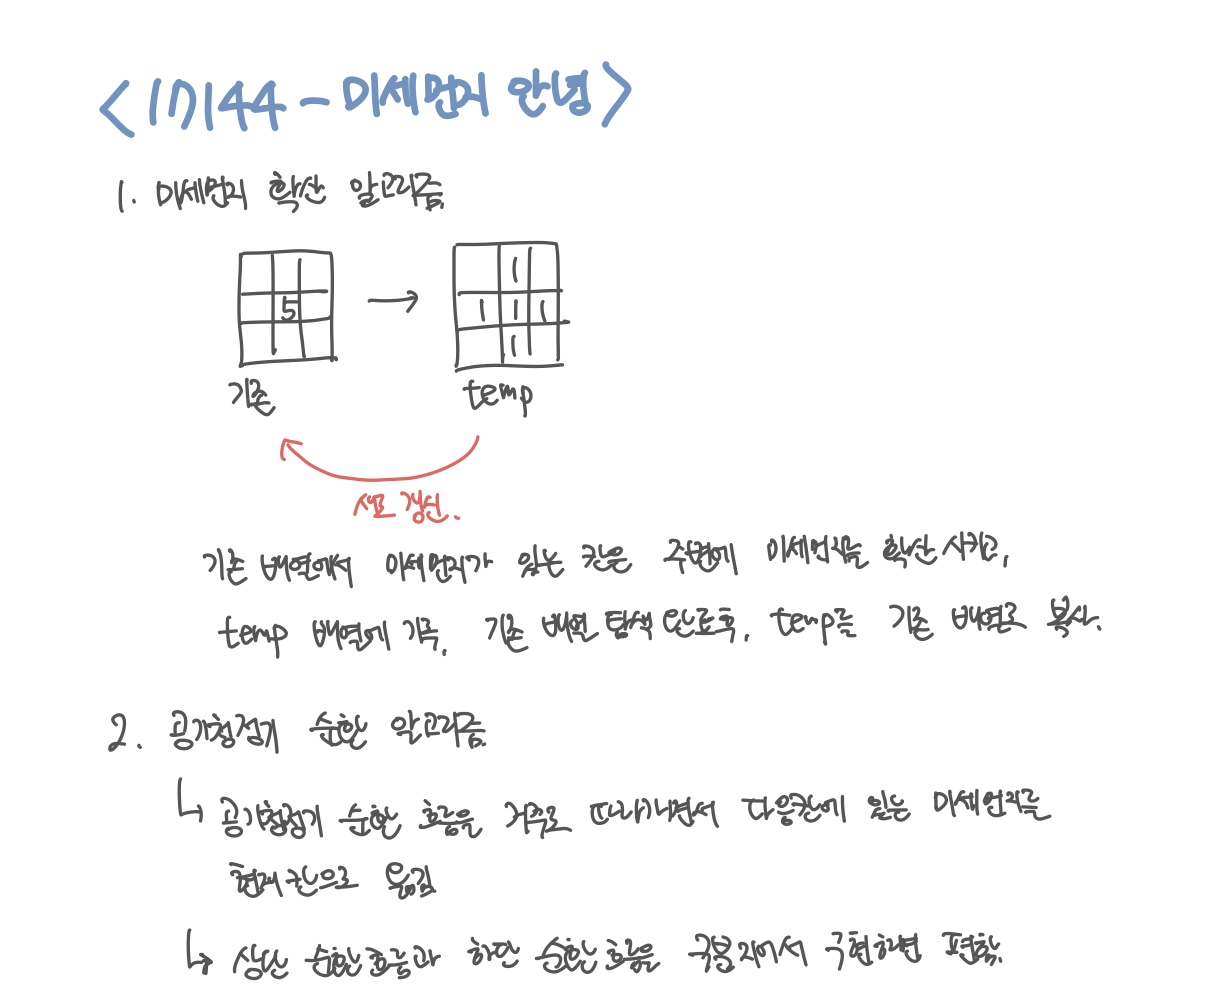 <17144 - 미세먼지 안녕>
1. 미세먼지 확산 알고리즘
5
1
1 1 1
1
기존 temp
새로 갱신.
기존 배열에서 미세먼지가 있는 칸은 주변에 미세먼지를 확산 시키고,
temp 배열에 기록, 기존 배열 탐색 완료후, temp를 기존 배열로 복사.
2. 공기청정기 순환 알고리즘
↳ 공기청정기 순환 흐름을 거꾸로 따라가면서 다음칸에 있는 미세먼지를
현재 칸으로 옮김
↳ 상단 순환흐름과 하단 순환 흐름을 구분지어서 구현하면 편함.